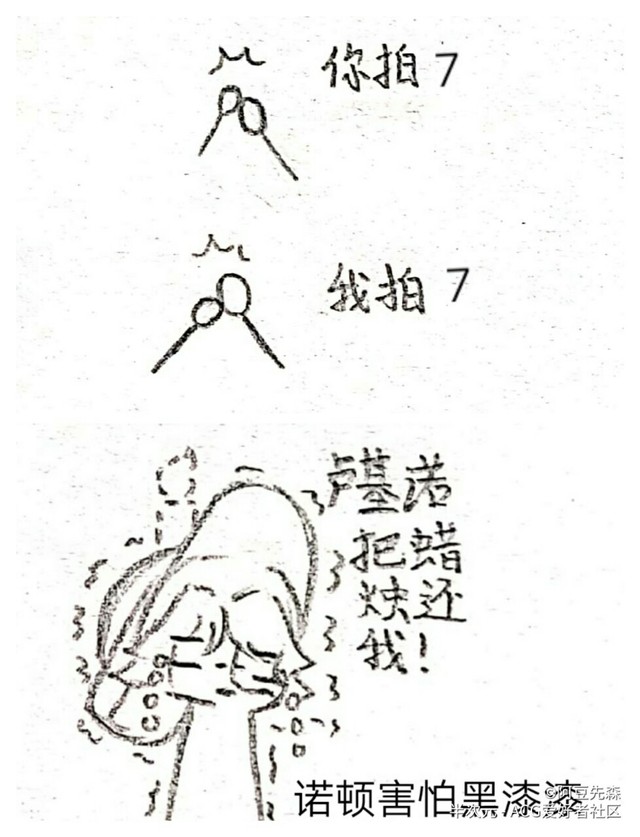 你拍7
我拍7
卢基诺
把蜡
烛还
我!
诺顿害怕黑漆漆
@阿豆先森
半次元 - ACG爱好者社区